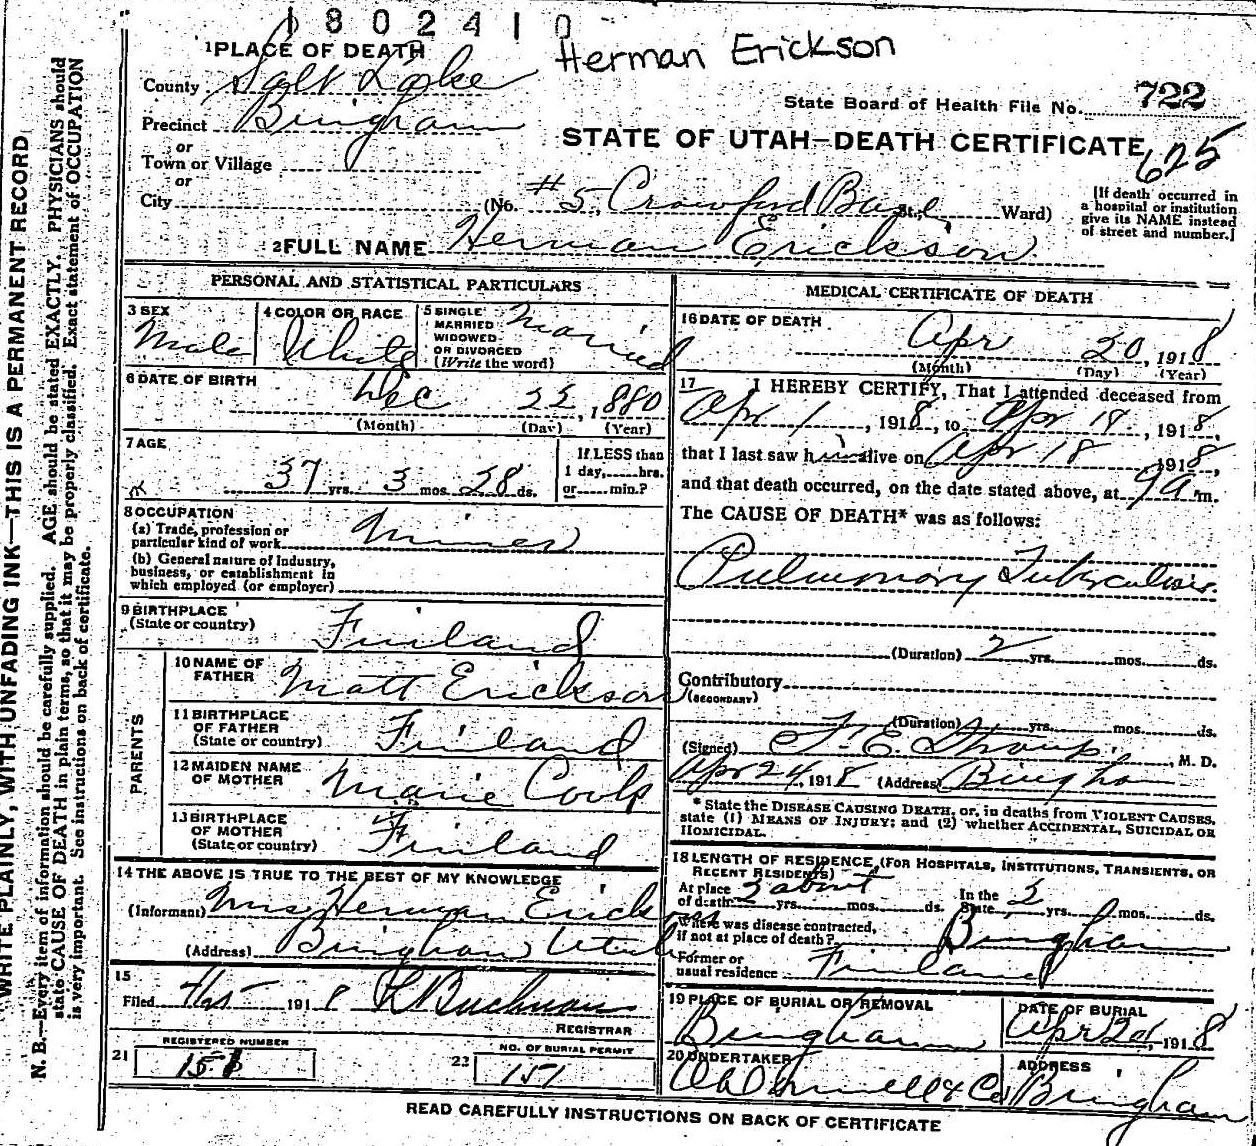 1802410
Herman Erickson
1 PLACE OF DEATH
County Salt Lake
State Board of Health File No. 722
Precinct Bingham
or
STATE OF UTAH—DEATH CERTIFICATE
625
Town or Village
or
City
(No. #5, Crawford St.; Ward)
[If death occurred in a hospital or institution give its NAME instead of street and number.]
2 FULL NAME Herman Erickson
PERSONAL AND STATISTICAL PARTICULARS
3 SEX
Male
4 COLOR OR RACE
White
5 SINGLE MARRIED WIDOWED OR DIVORCED (Write the word)
Married
6 DATE OF BIRTH
Dec 1880
(Month) (Day) (Year)
7 AGE
37 yrs. 3 mos. 28 ds.
If LESS than 1 day, hrs. or min.?
8 OCCUPATION
(a) Trade, profession or particular kind of work Miner
(b) General nature of Industry, business, or establishment in which employed (or employer)
9 BIRTHPLACE
(State or country) Finland
PARENTS
10 NAME OF FATHER Matt Erickson
11 BIRTHPLACE OF FATHER (State or country) Finland
12 MAIDEN NAME OF MOTHER Marie
13 BIRTHPLACE OF MOTHER (State or country) Finland
14 THE ABOVE IS TRUE TO THE BEST OF MY KNOWLEDGE
(Informant) Mrs Herman Erickson
(Address) Bingham Utah
15
Filed 4/25 1918
REGISTRAR
21 REGISTERED NUMBER
151
22 NO. OF BURIAL PERMIT
151
MEDICAL CERTIFICATE OF DEATH
16 DATE OF DEATH
Apr 20, 1918
(Month) (Day) (Year)
17 I HEREBY CERTIFY, That I attended deceased from
Apr 1, 1918, to Apr 18, 1918,
that I last saw him alive on Apr 18, 1918,
and that death occurred, on the date stated above, at 9 a m.
The CAUSE OF DEATH* was as follows:
Pulmonary Tuberculosis.
(Duration) 2 yrs. mos. ds.
Contributory
(SECONDARY)
(Duration) yrs. mos. ds.
(Signed) F. E. Straup, M. D.
Apr 24, 1918 (Address) Bingham
* State the DISEASE CAUSING DEATH, or, in deaths from VIOLENT CAUSES,
state (1) MEANS OF INJURY; and (2) whether ACCIDENTAL, SUICIDAL OR
HOMICIDAL.
18 LENGTH OF RESIDENCE (FOR HOSPITALS, INSTITUTIONS, TRANSIENTS, OR
RECENT RESIDENTS)
At place of death 2 about yrs. mos. ds. In the State yrs. mos. ds.
Where was disease contracted, if not at place of death? Bingham
Former or usual residence Finland
19 PLACE OF BURIAL OR REMOVAL
Bingham
DATE OF BURIAL
Apr 1918
20 UNDERTAKER
& Co
ADDRESS
Bingham
READ CAREFULLY INSTRUCTIONS ON BACK OF CERTIFICATE
WRITE PLAINLY, WITH UNFADING INK—THIS IS A PERMANENT RECORD
N. B.—Every item of information should be carefully supplied. AGE should be stated EXACTLY. PHYSICIANS should
state CAUSE OF DEATH in plain terms, so that it may be properly classified. Exact statement of OCCUPATION
is very important. See instructions on back of certificate.